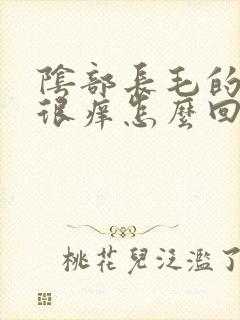 陰部長毛的
很癢怎麼回
桃花兒泛濫了